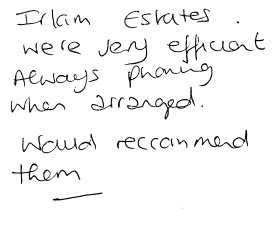 Irlam Estates.
were very efficient
Always phoning
when arranged.
Would reccommend
them